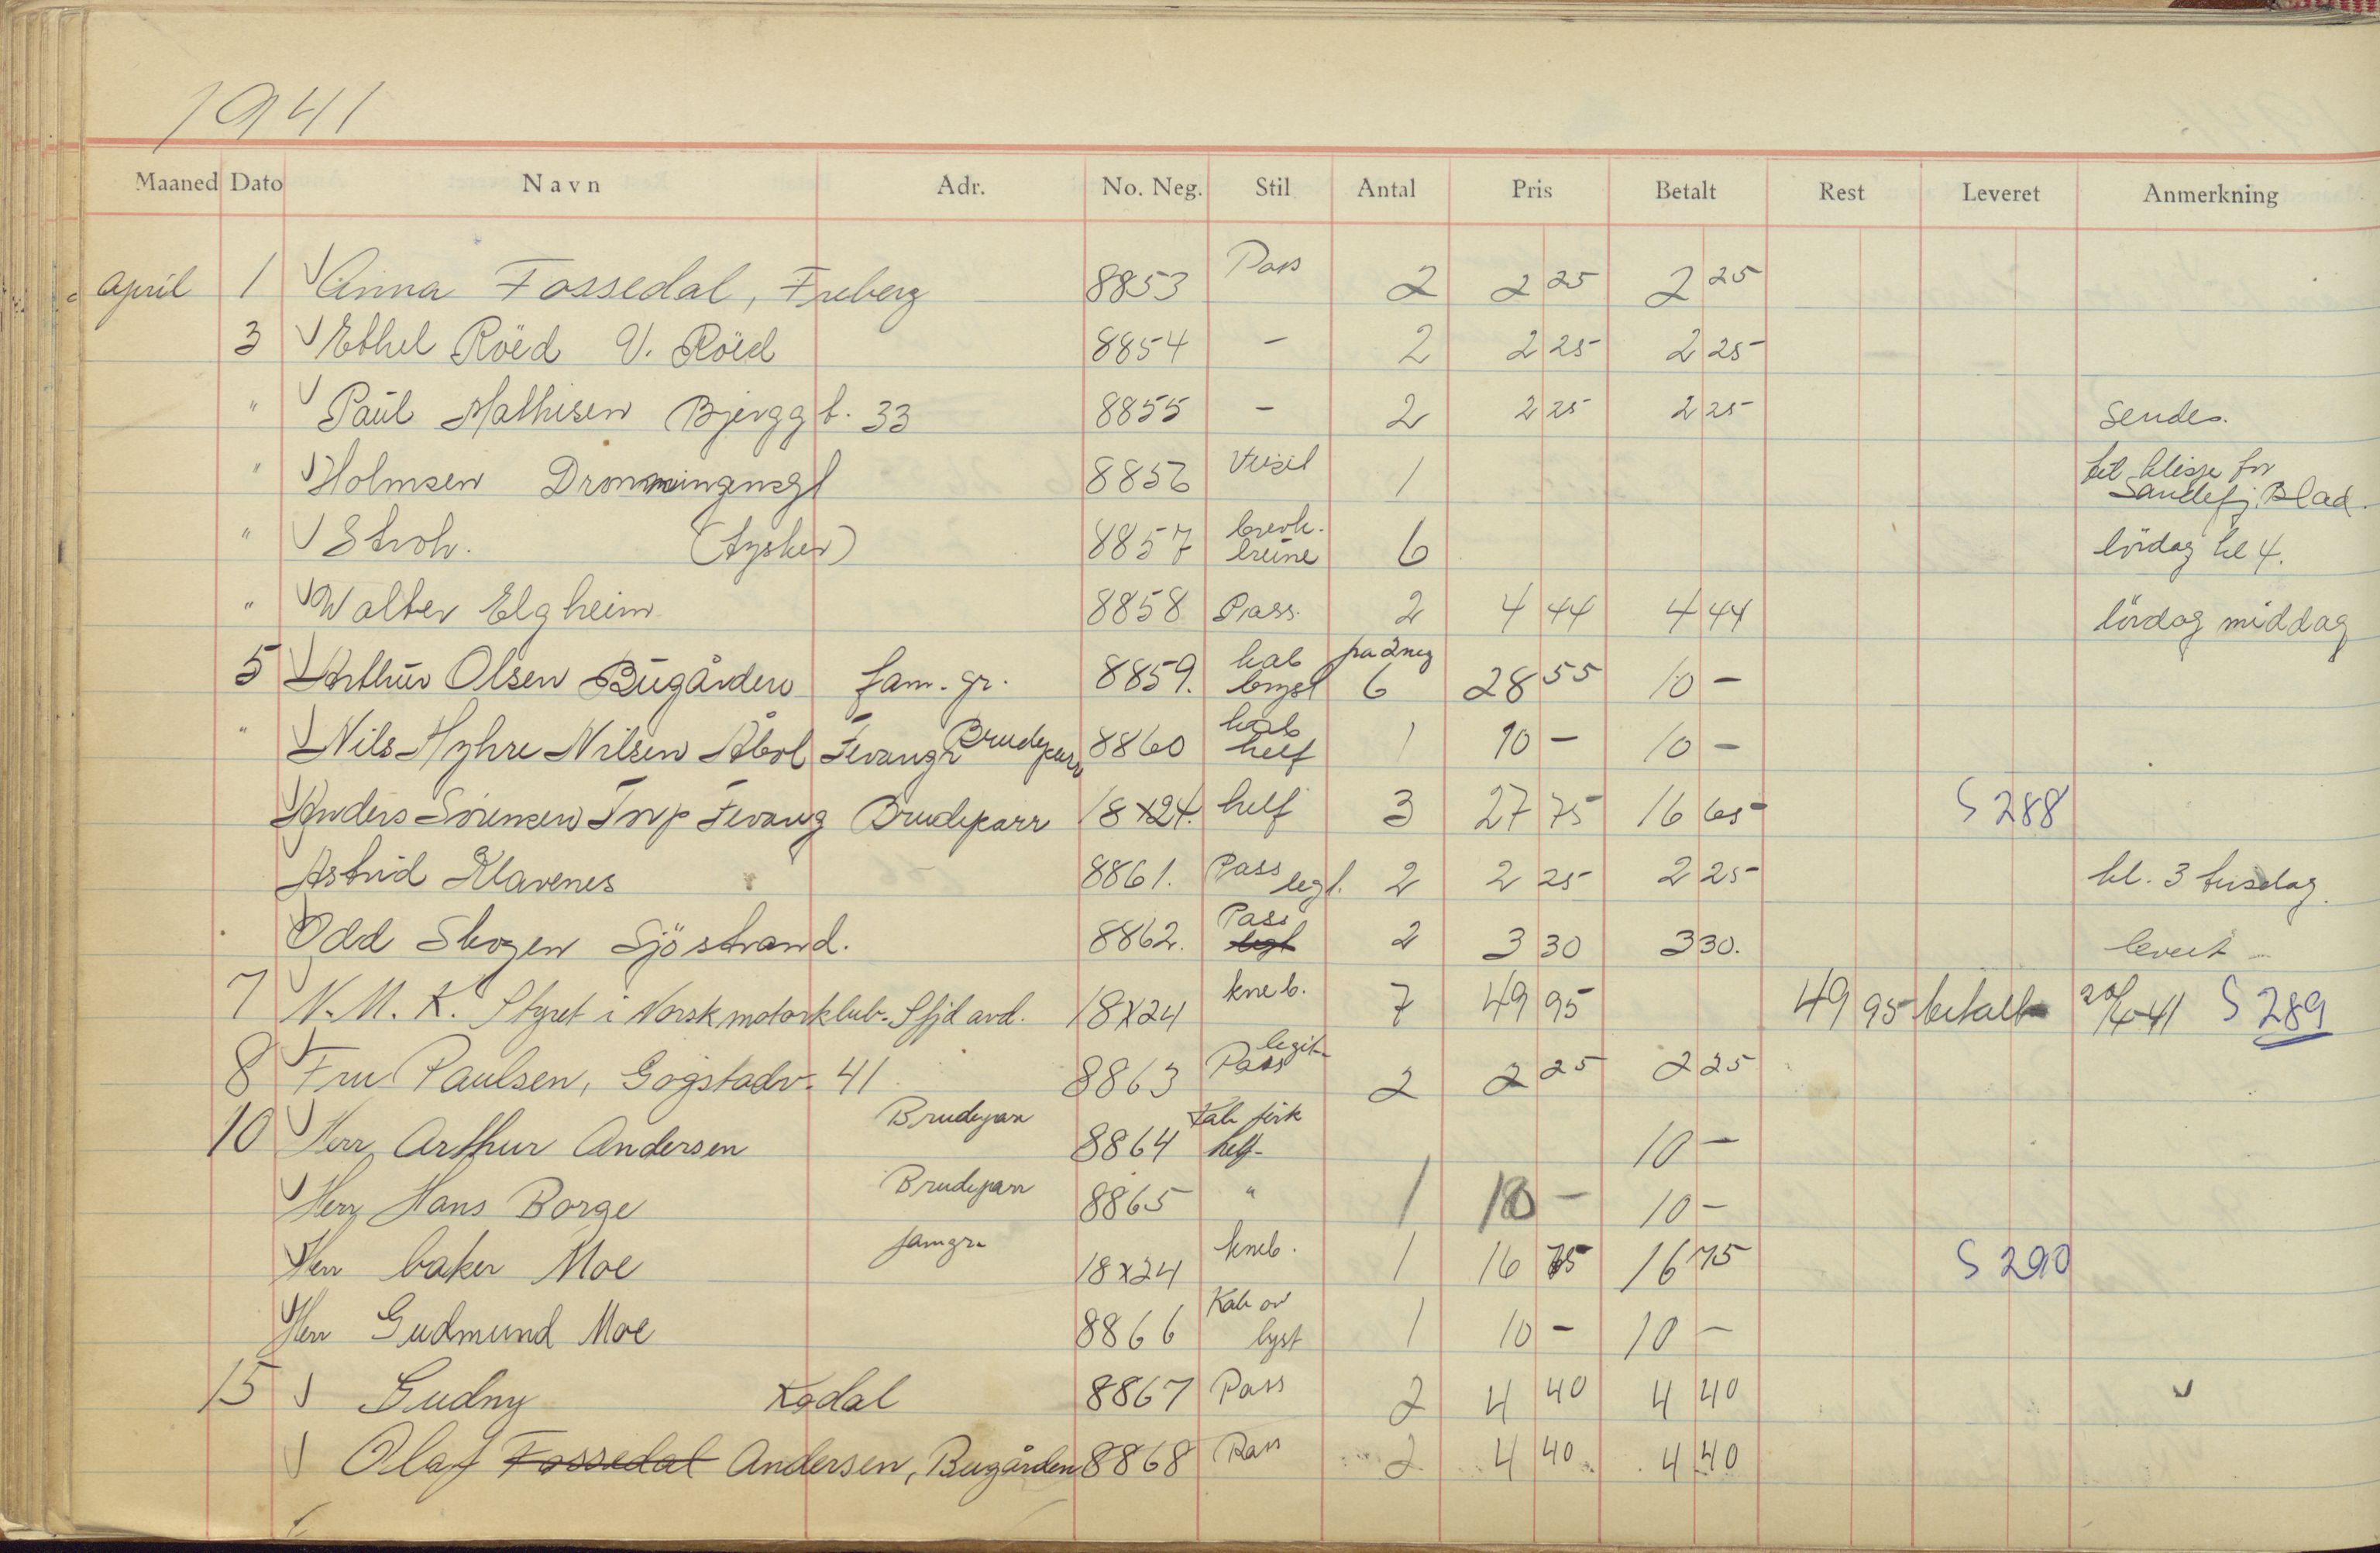 1941
Maaned Dato Navn Adr. No. Neg. Stil Antal Pris Betalt Rest Leveret Anmerkning
April 1 Anna Fossedal, Freberg 8853 Pass 2 2 25 2 25
3 Ethel Röed V. Röed 8854 - 2 2 25 2 25
" Paul Mathisen Bjerggt. 33 8855 - 2 2 25 2 25 Sendes.
" Holmsen Dronningensgt 8856 Visit 1 til klisje for Sandefj. Blad.
" Stroh. (tysker) 8857 brevk. brune 6 lördag kl 4.
" Walter Elgheim 8858 Pass. 2 4 44 4 44 lördag middag
5 Arthur Olsen Bugården fam. gr. 8859. kab bryst på 2 neg 6 28 55 10 -
" Nils Myhre Nilsen Åbol Fevang Brudepar 8860 kab helf 1 10 - 10 -
Anders Sörensen Torp Fevang Brudeparr 18x24. helf 3 27 75 16 65 S 288
Astrid Klavenes 8861. Pass legt. 2 2 25 2 25 kl. 3 tirsdag.
Odd Skogen Sjöstrand. 8862. Pass legt 2 3 30 3 30. levert
7 N.M.K. Styret i Norsk motorklub. Sfjd avd. 18x24 kneb. 7 49 95 49 95 betalt 20/4-41 S 289
8 Fru Paulsen, Gogstadv. 41 8863 Pass legit. 2 2 25 2 25
10 Herr Arthur Andersen Brudepar 8864 Kab helf- 10 -
Herr Hans Borge Brudepar 8865 " 1 10 - 10 -
Herr baker Moe famgr. 18x24 kneb. 1 16 75 16 75 S 290
Herr Gudmund Moe 8866 Kab bryst 1 10 - 10 -
15 Gudny Kodal 8867 Pass 2 4 40 4 40
Olaf Fossedal Andersen, Bugården 8868 Pass 2 4 40 4 40